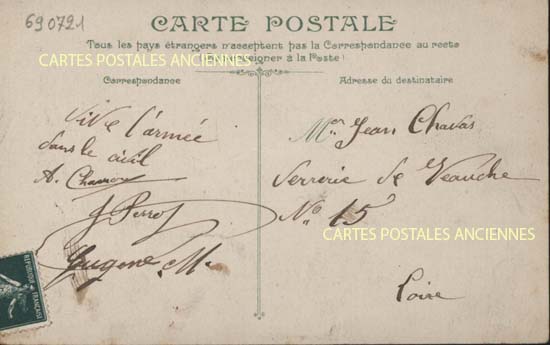 690721
CARTE POSTALE
Tous les pays étrangers n'acceptent pas la Correspondance au recto
(Se renseigner à la Poste)
CARTES POSTALES ANCIENNES
Correspondance
Adresse du destinataire
Vive l'armée
dans le civil
A.
J. Perrot
Eugene M.
Mr Jean Chavas
Verrerie de Veauche
No 15
CARTES POSTALES ANCIENNES
Loire